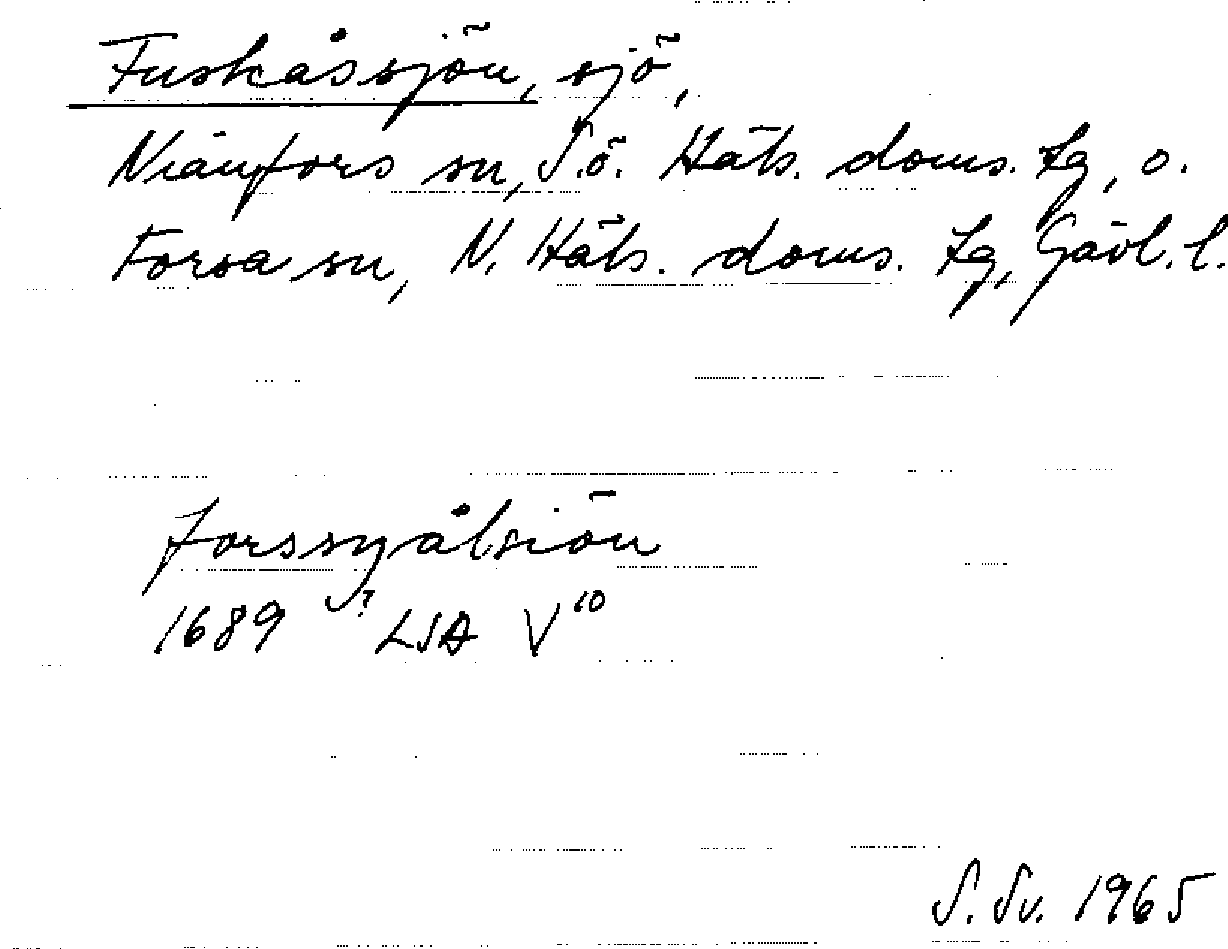 Fuskåssjön, sjö,
Nianfors sn, S.ö. Häls. doms. tg, o.
Forsa sn, N. Häls. doms. tg, Gävl. l.
forssnyålsiön
1689 ? LSA V10
S. Sv. 1965